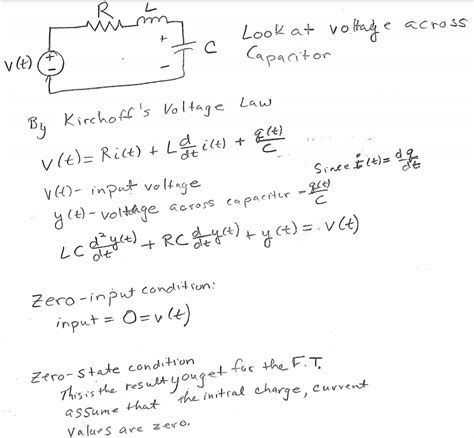 R L
v(t) + - + - C
Look at voltage across
Capacitor
By Kirchoff's Voltage Law
v(t) = Ri(t) + L d/dt i(t) + q(t)/C
Since i(t) = dq/dt
v(t) - input voltage
y(t) - voltage across capacitor - q(t)/C
LC d²y(t)/dt² + RC d/dt y(t) + y(t) = v(t)
Zero-input condition:
input = 0 = v(t)
Zero-state condition
This is the result you get for the F.T.
assume that the initial charge, current
values are zero.